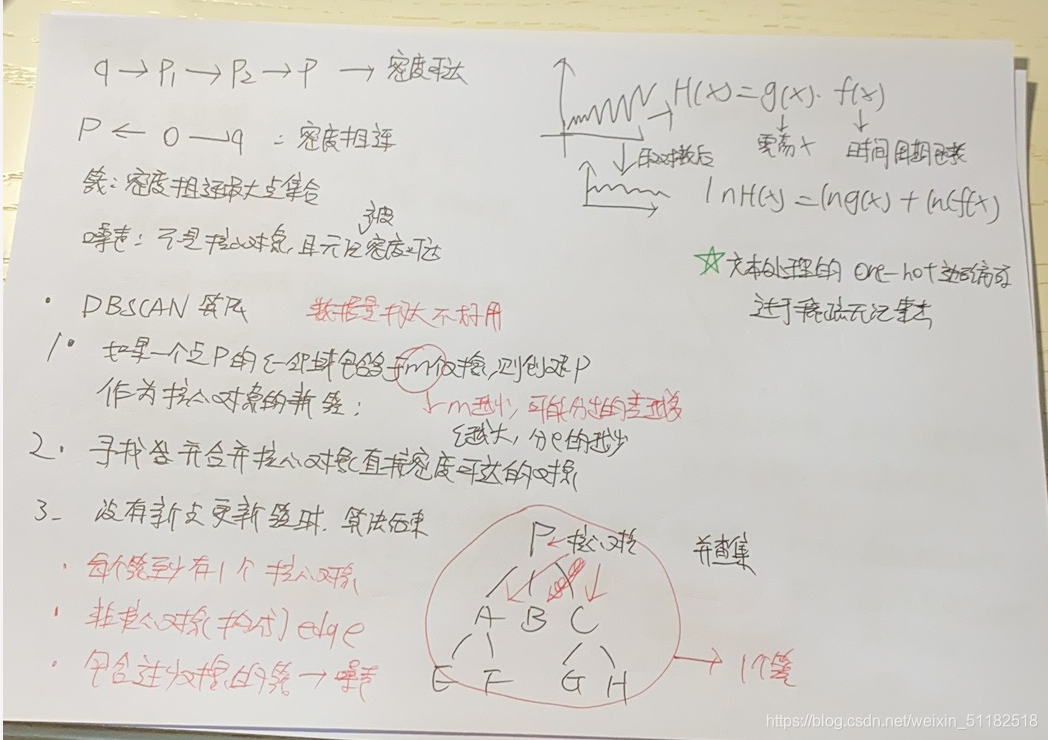 q → P₁ → P₂ → P → 密度可达
P ← O → q : 密度相连
簇: 密度相连最大点集合
噪声: 不是核心对象, 且无法被密度可达
· DBSCAN 算法 数据量太大不好用
1° 如果一个点P的ε-邻域包含多于m个对象,则创建P
作为核心对象的新簇;
↓ m越小, 可能分出的类越多
ε越大, 分的越少
2. 寻找并合并核心对象直接密度可达的对象
3. 没有新点更新簇时, 算法结束
· 每个簇至少有1个核心对象
· 非核心对象(构成) edge
· 包含过少对象的簇 → 噪声
H(x) = g(x) · f(x)
时间周期
取对数后
lnH(x) = lng(x) + lnf(x)
☆ 文本处理的 one-hot
过于稀疏
P ← 核心对象
并查集
A B C
E F G H
→ 1个簇
https://blog.csdn.net/weixin_51182518